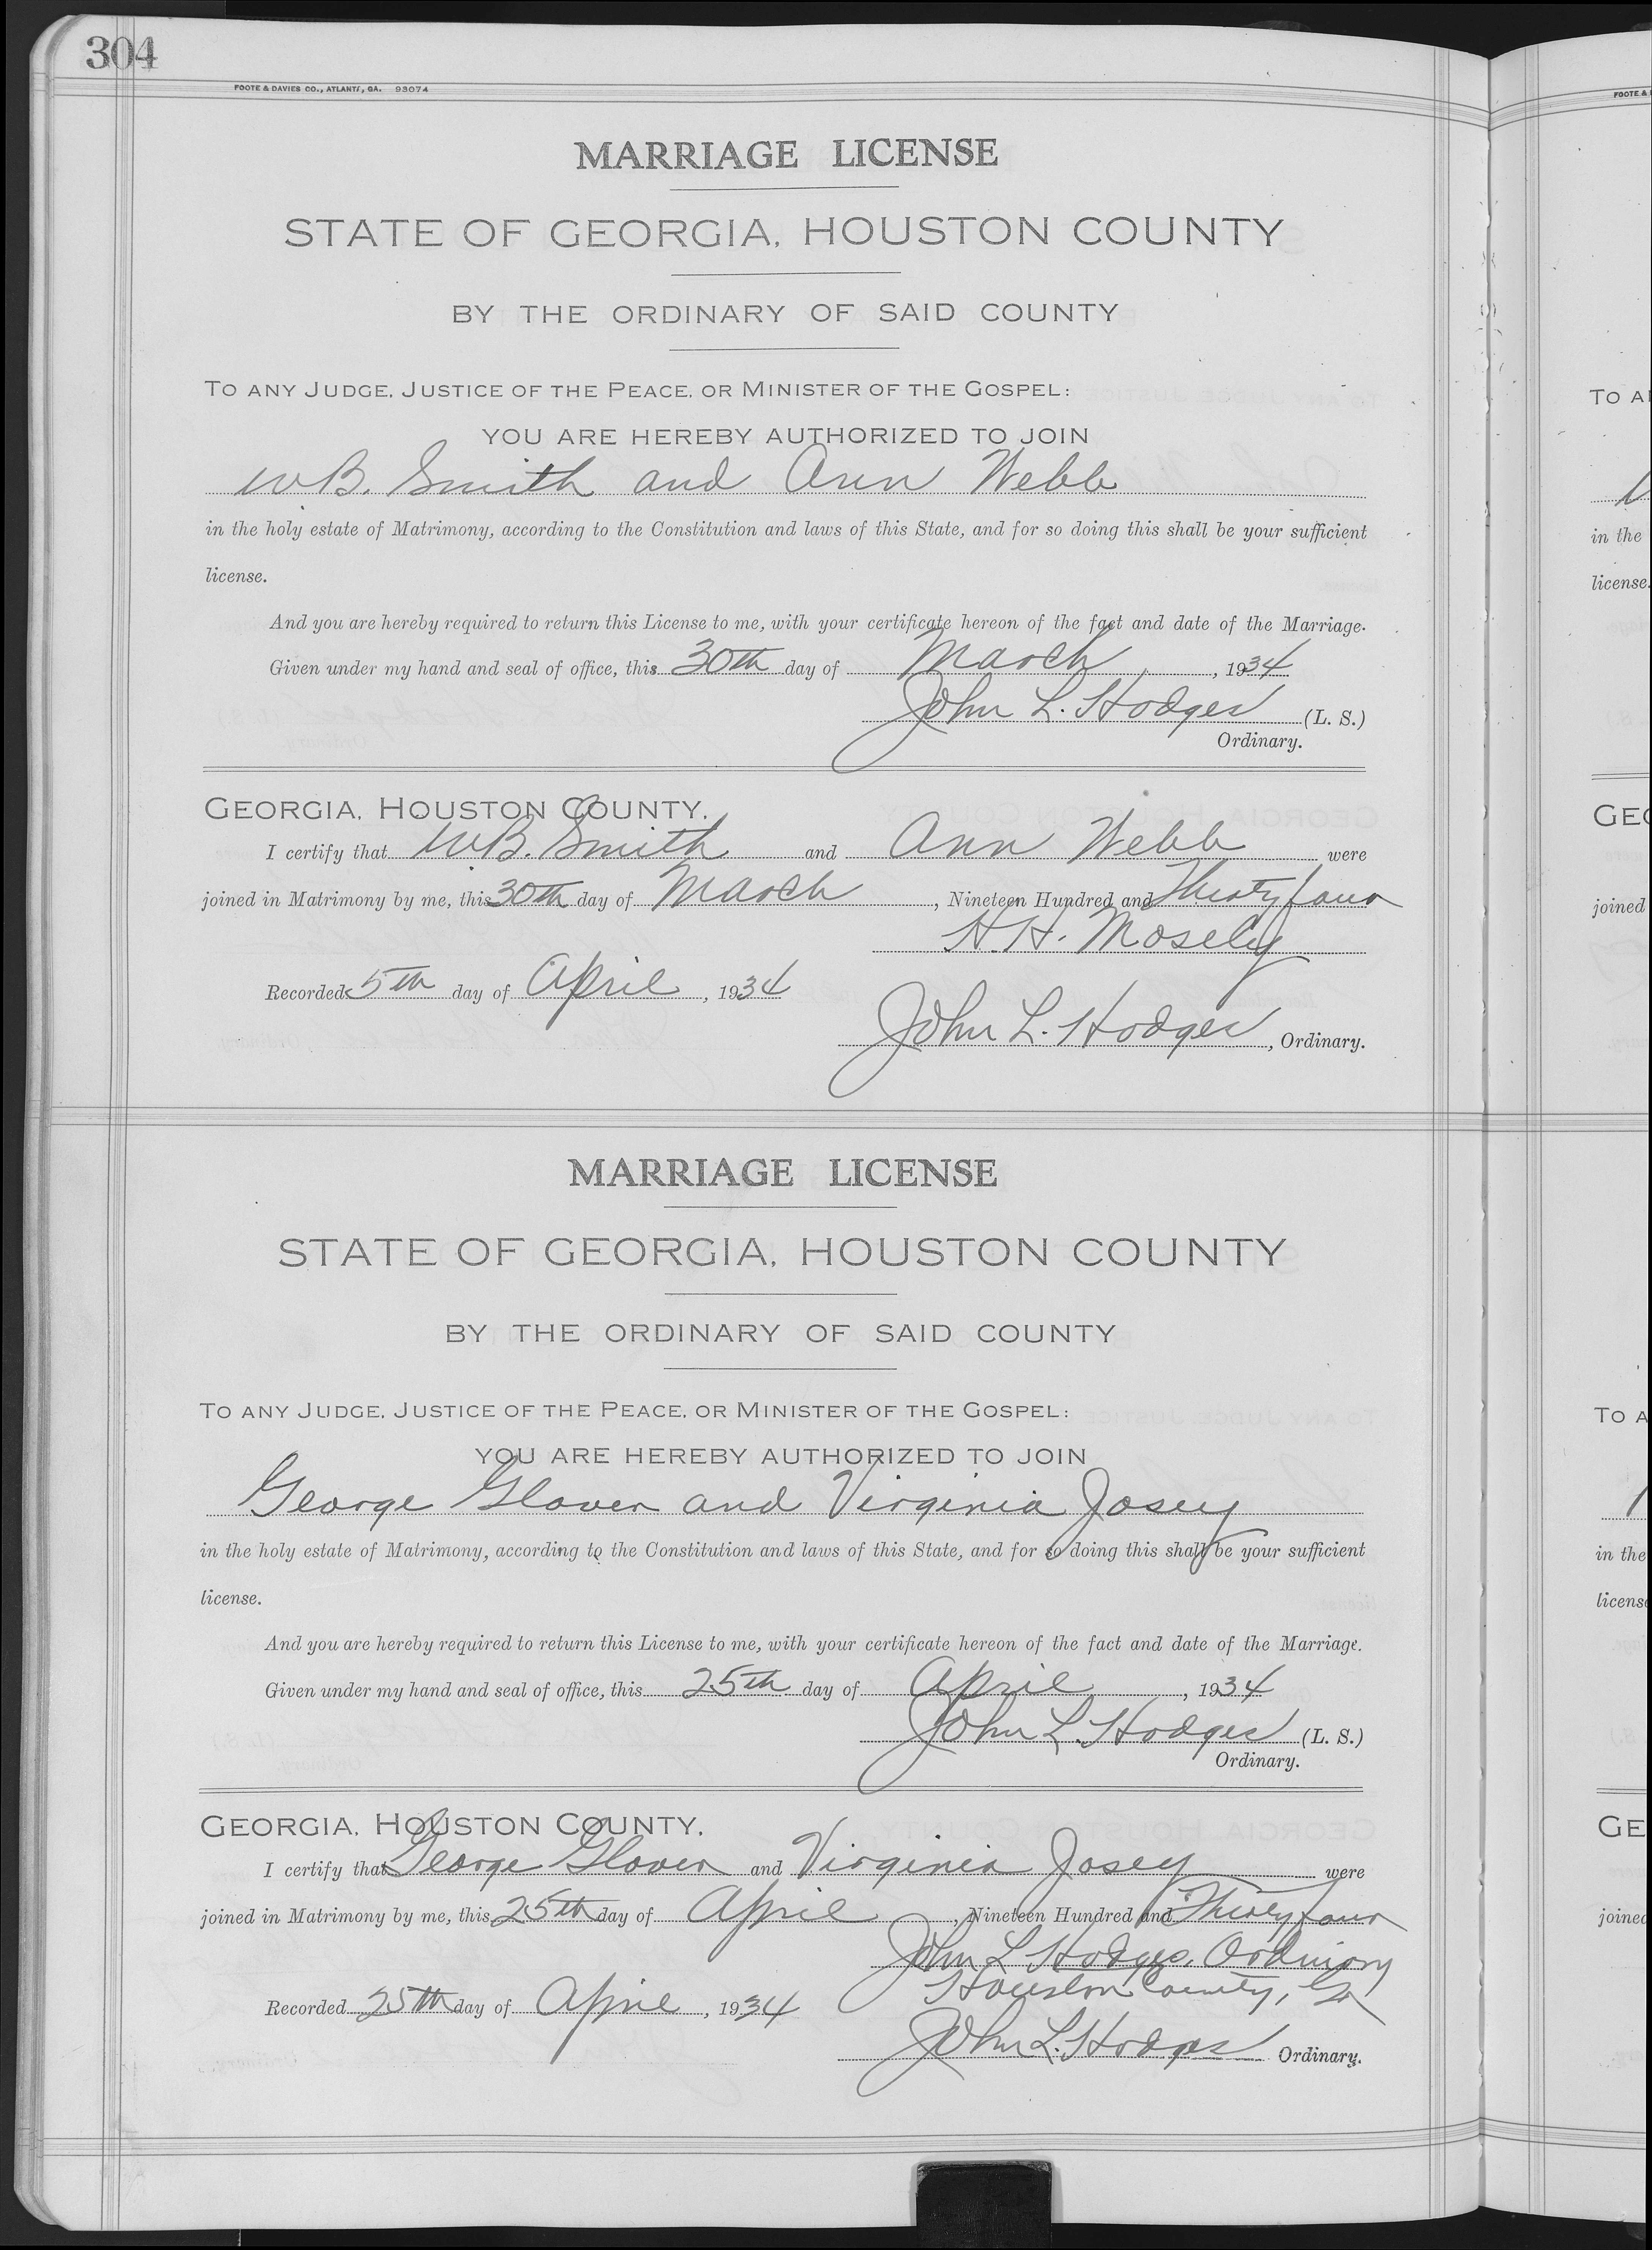 304
FOOTE & DAVIES CO., ATLANTA, GA. 93074
MARRIAGE LICENSE
STATE OF GEORGIA, HOUSTON COUNTY
BY THE ORDINARY OF SAID COUNTY
TO ANY JUDGE, JUSTICE OF THE PEACE, OR MINISTER OF THE GOSPEL:
YOU ARE HEREBY AUTHORIZED TO JOIN
W B. Smith and Ann Webb
in the holy estate of Matrimony, according to the Constitution and laws of this State, and for so doing this shall be your sufficient
license.
And you are hereby required to return this License to me, with your certificate hereon of the fact and date of the Marriage.
Given under my hand and seal of office, this 30th day of March, 1934
John L. Hodges (L. S.)
Ordinary.
GEORGIA, HOUSTON COUNTY.
I certify that W B. Smith and Ann Webb were
joined in Matrimony by me, this 30th day of March, Nineteen Hundred and Thirty four
H. H. Mosely
Recorded 5th day of April, 1934
John L. Hodges, Ordinary.
MARRIAGE LICENSE
STATE OF GEORGIA, HOUSTON COUNTY
BY THE ORDINARY OF SAID COUNTY
TO ANY JUDGE, JUSTICE OF THE PEACE, OR MINISTER OF THE GOSPEL:
YOU ARE HEREBY AUTHORIZED TO JOIN
George Glover and Virginia Josey
in the holy estate of Matrimony, according to the Constitution and laws of this State, and for so doing this shall be your sufficient
license.
And you are hereby required to return this License to me, with your certificate hereon of the fact and date of the Marriage.
Given under my hand and seal of office, this 25th day of April, 1934
John L. Hodges (L. S.)
Ordinary.
GEORGIA, HOUSTON COUNTY.
I certify that George Glover and Virginia Josey were
joined in Matrimony by me, this 25th day of April, Nineteen Hundred and Thirty four
John L Hodges, Ordinary
Houston County, Ga
Recorded 25th day of April, 1934
John L. Hodges Ordinary.
FOOTE &
TO A
in the
license.
GEO
joined
TO A
in the
license
GE
joined